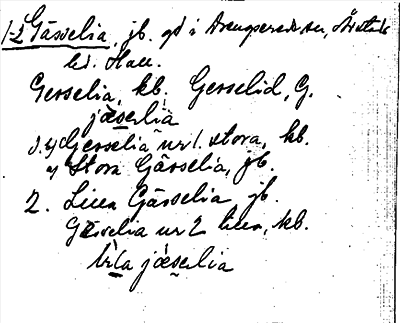 1-2 Gässelia, jb. gd i Drengsereds sn, Årstads
hd. Hall.
Gerselia, kb. Gerselid, G.
jæselia
1. a) Gerselia nr 1. stora, kb.
a) Stora Gässelia, jb.
2. Lilla Gässelia, jb.
Gässelia nr 2 lilla, kb.
lìla jæselia